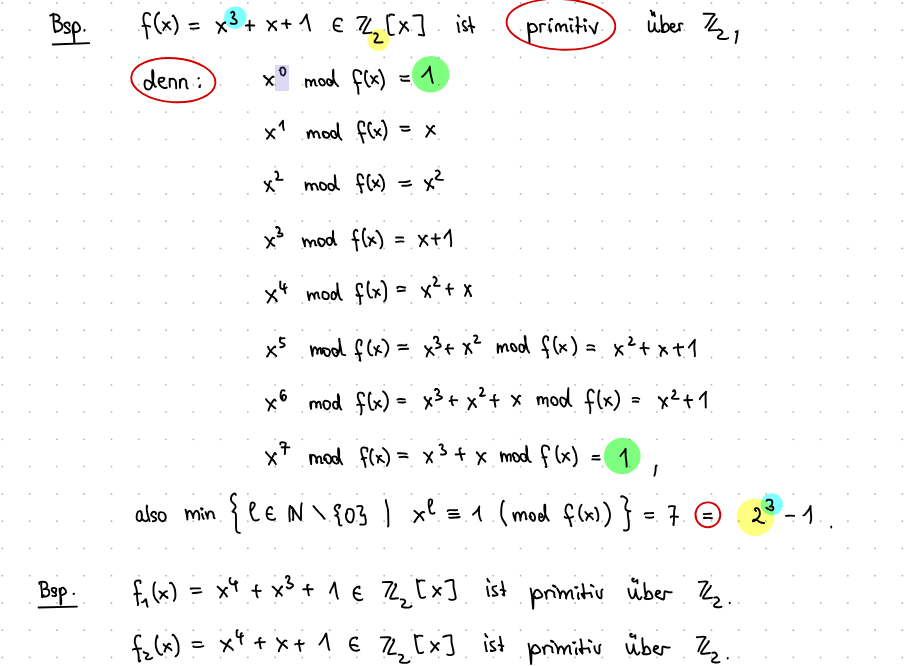 Bsp. f(x) = x³ + x + 1 ∈ ℤ₂[x] ist primitiv über ℤ₂,
denn: x⁰ mod f(x) = 1
x¹ mod f(x) = x
x² mod f(x) = x²
x³ mod f(x) = x+1
x⁴ mod f(x) = x² + x
x⁵ mod f(x) = x³ + x² mod f(x) = x² + x + 1
x⁶ mod f(x) = x³ + x² + x mod f(x) = x² + 1
x⁷ mod f(x) = x³ + x mod f(x) = 1 ,
also min { l ∈ ℕ \ {0} | xˡ ≡ 1 (mod f(x)) } = 7 = 2³ - 1 .
Bsp. f₁(x) = x⁴ + x³ + 1 ∈ ℤ₂[x] ist primitiv über ℤ₂.
f₂(x) = x⁴ + x + 1 ∈ ℤ₂[x] ist primitiv über ℤ₂.